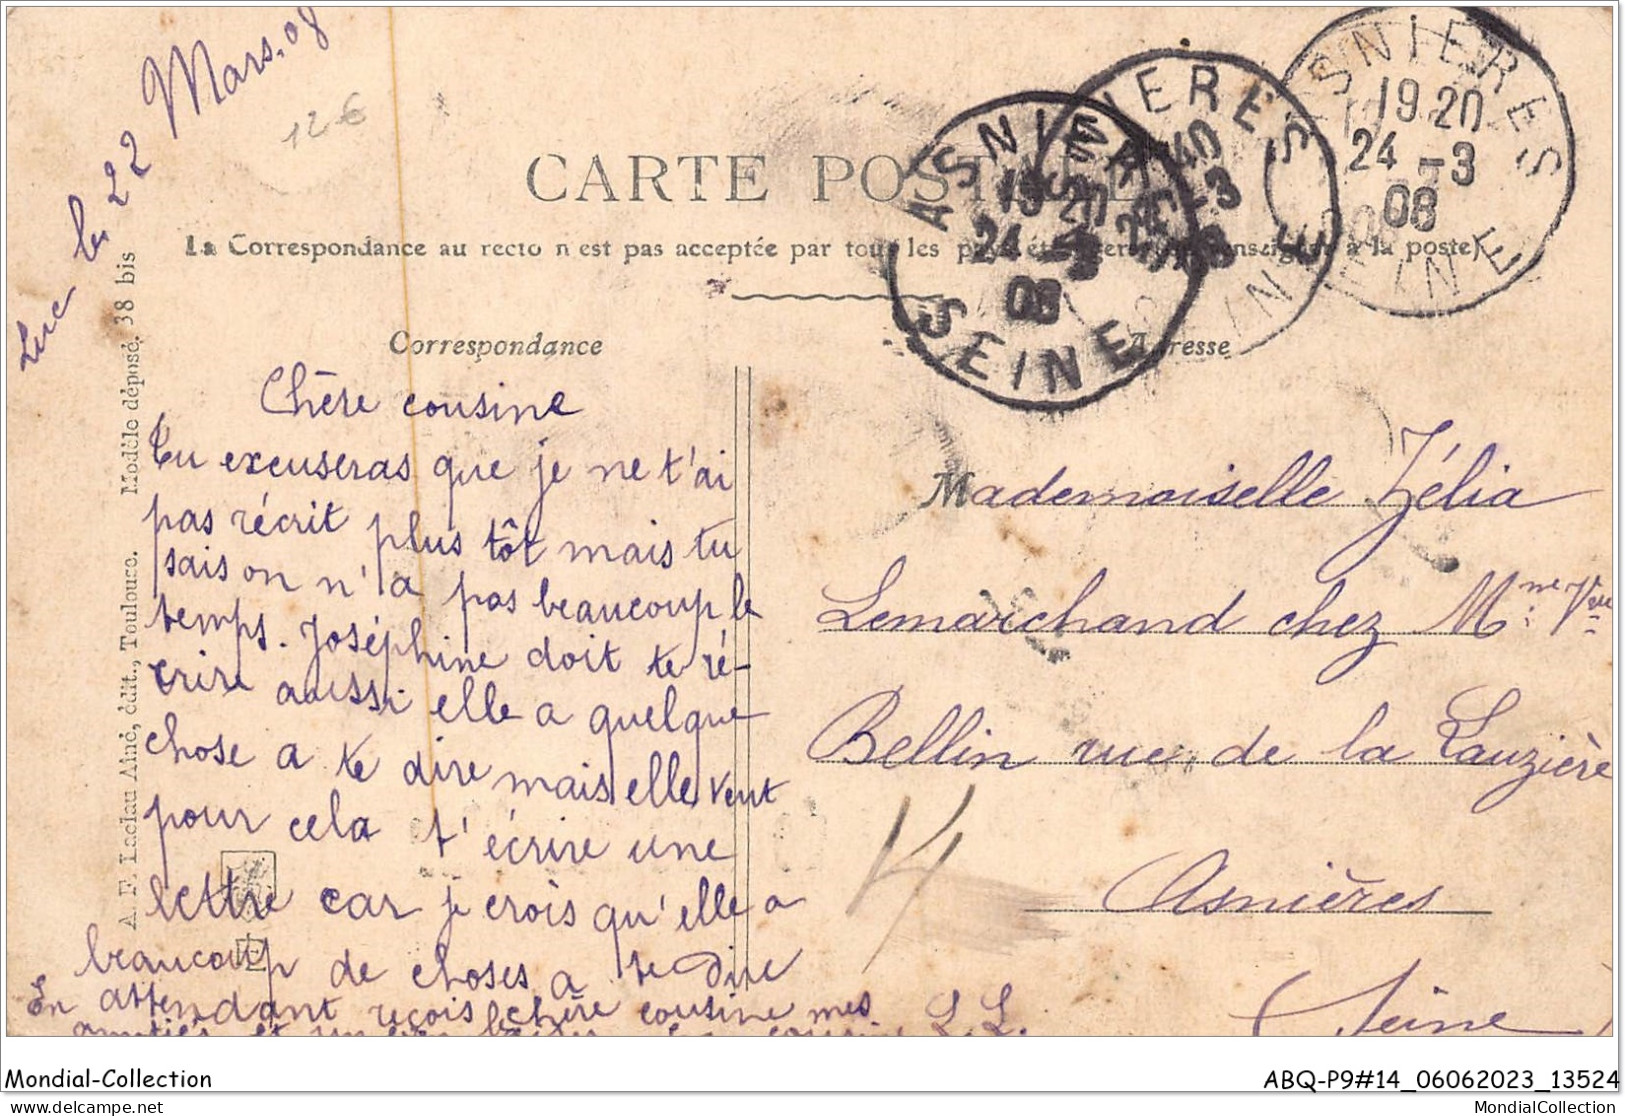 Luc le 22 Mars. 08
12 €
CARTE POSTALE
La Correspondance au recto n est pas acceptée par tous les pays (à la poste)
Correspondance
Adresse
ASNIERES
19 20
24 -3
08
SEINE
ASNIERES
40
-3
ASNIERES
19 20
24 -3
08
SEINE
A. F. Laclau Ainé, édit., Toulouse. Modèle déposé. 38 bis
Chère cousine
Tu excuseras que je ne t'ai
pas récrit plus tôt mais tu
sais on n'a pas beaucoup le
temps. Joséphine doit te ré-
crire aussi elle a quelque
chose a te dire mais elle veut
pour cela t'écrire une
lettre car je crois qu'elle a
beaucoup de choses a te dire
En attendant reçois chère cousine mes
amitiés et un bon L. L.
Mademoiselle Zélia
Lemarchand chez Mme Vve
Bellin rue de la Lauzière
Asnières
Seine
14
Mondial-Collection
ABQ-P9#14_06062023_13524
delcampe.net
MondialCollection